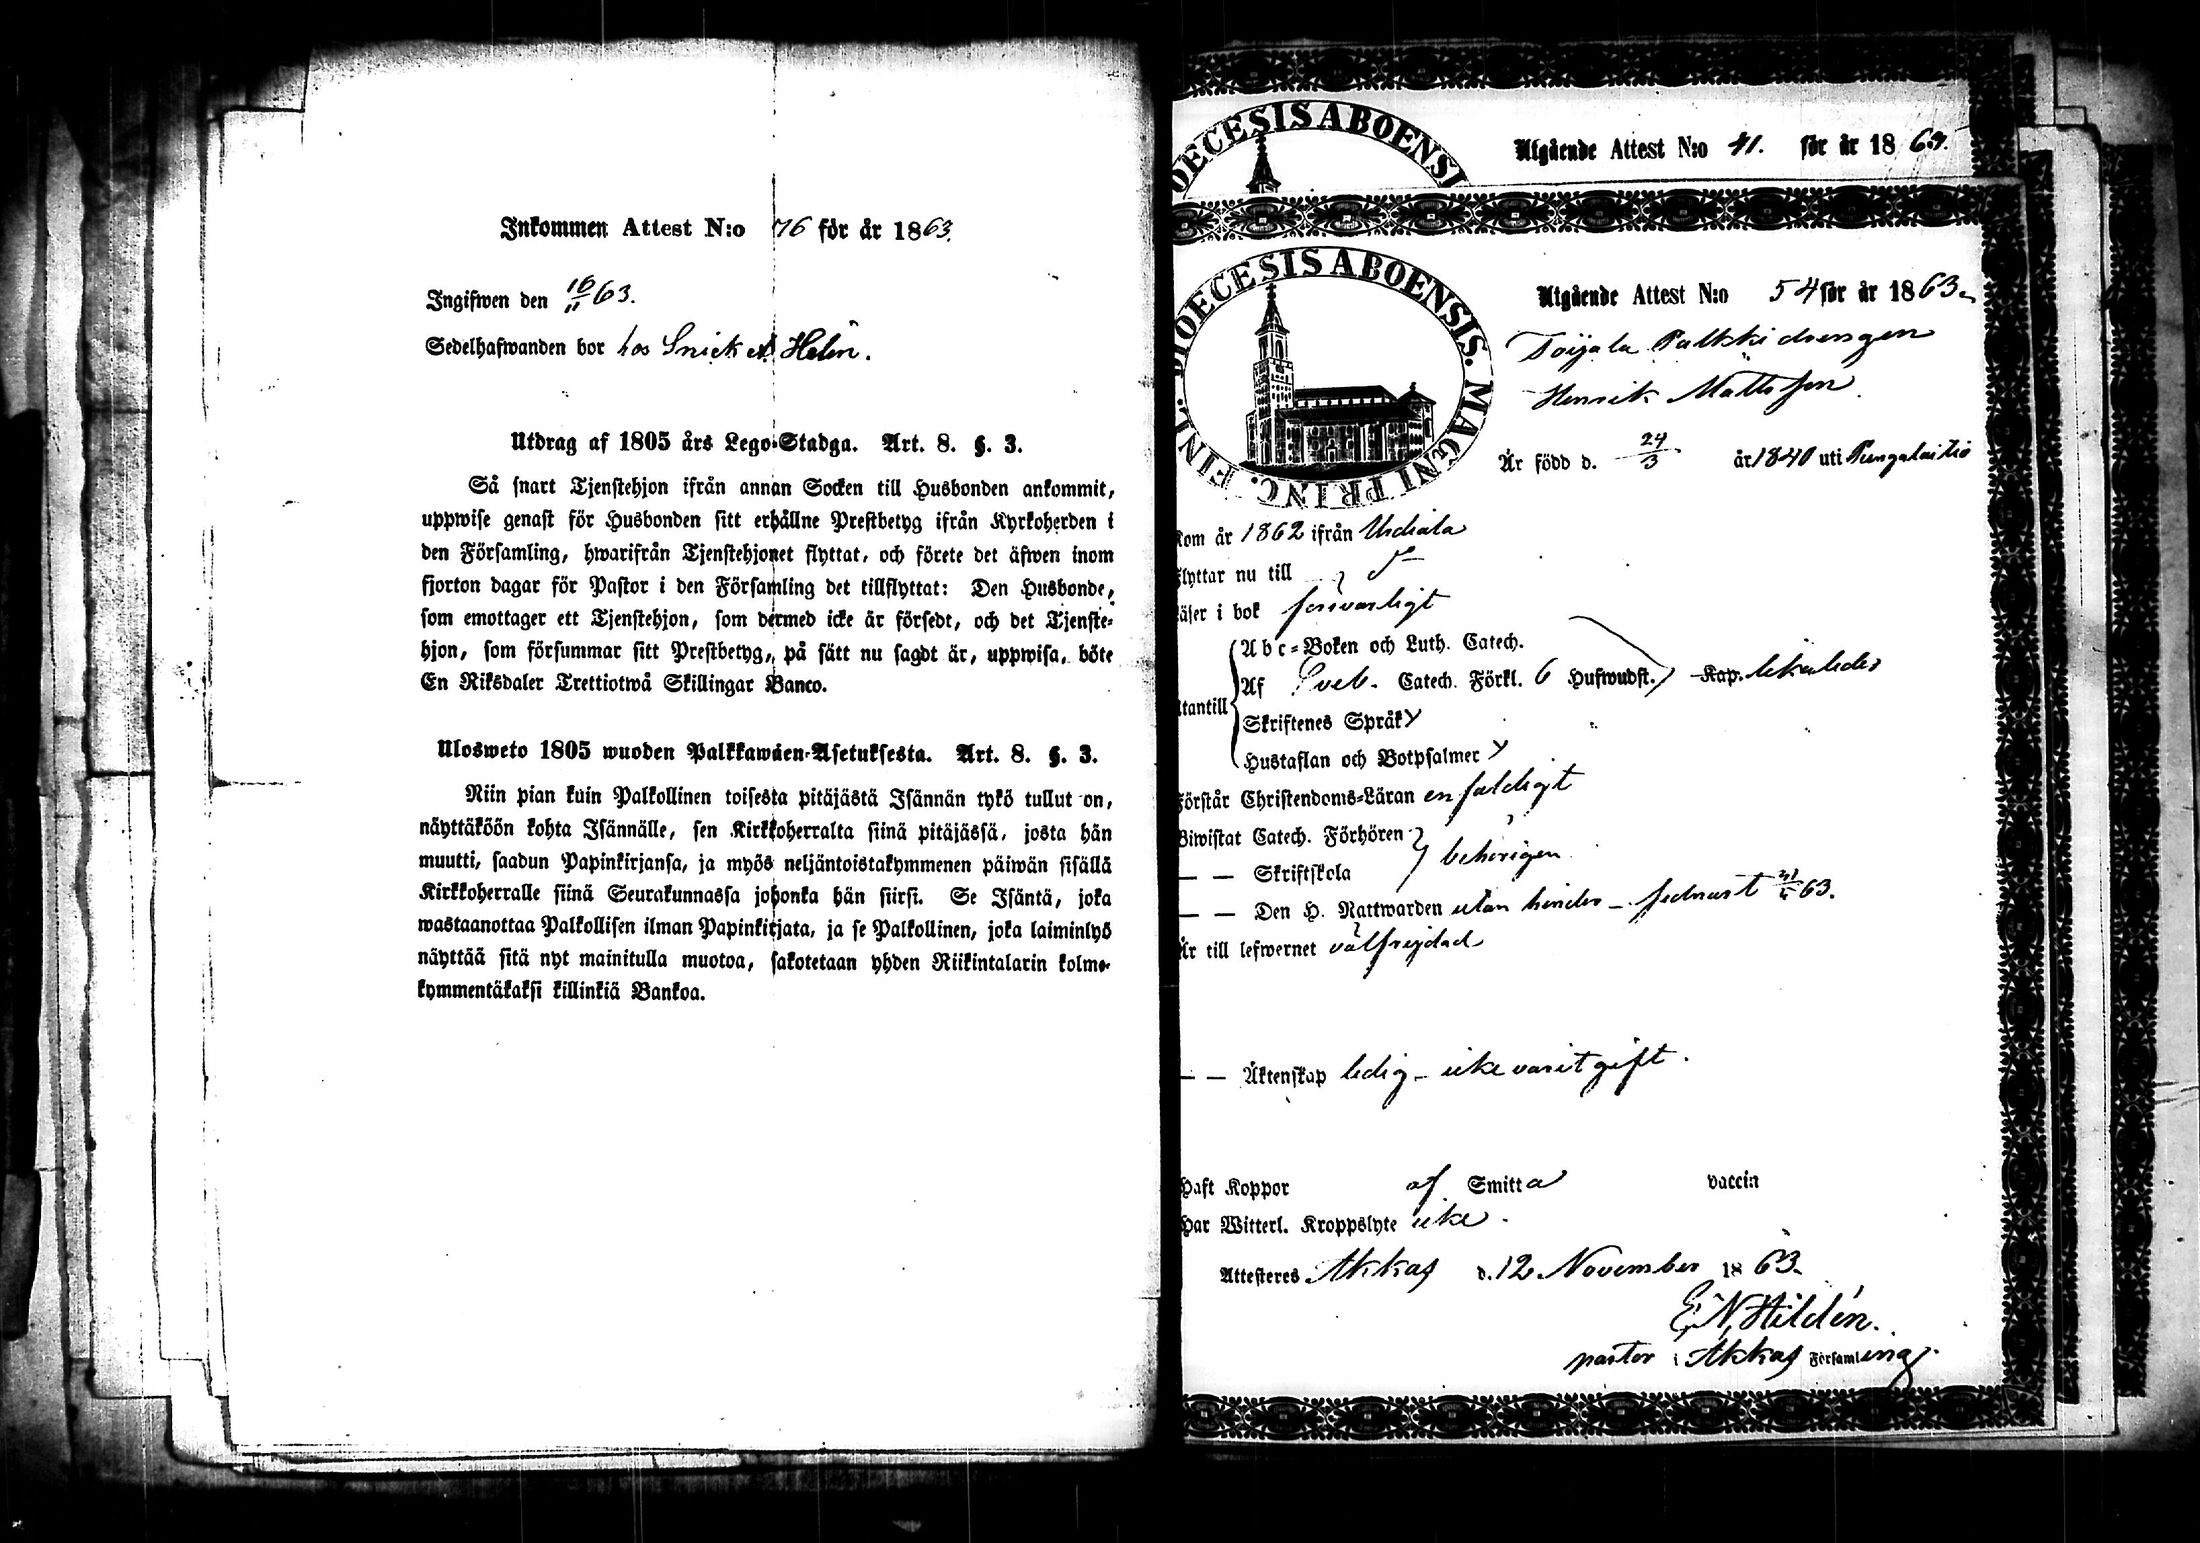 Inkommen Attest N:o 76 för år 1863.
Ingifwen den 16/11 63.
Sedelhafwanden bor hos Snick Helin.
Utdrag af 1805 års Lego-Stadga. Art. 8. §. 3.
Så snart Tjenstehjon ifrån annan Socken till Husbonden ankommit,
uppwise genast för Husbonden sitt erhållne Prestbetyg ifrån Kyrkoherden i
den Församling, hwarifrån Tjenstehjonet flyttat, och förete det äfwen inom
fjorton dagar för Pastor i den Församling det tillflyttat: Den Husbonde,
som emottager ett Tjenstehjon, som dermed icke är försedt, och det Tjenste-
hjon, som försummar sitt Prestbetyg, på sätt nu sagdt är, uppwisa, böte
En Riksdaler Trettiotwå Skillingar Banco.
Ulosweto 1805 wuoden Palkkawäen-Asetuksesta. Art. 8. §. 3.
Niin pian kuin Palkollinen toisesta pitäjästä Isännän tykö tullut on,
näyttäköön kohta Isännälle, sen Kirkkoherralta siinä pitäjässä, josta hän
muutti, saadun Papinkirjansa, ja myös neljäntoistakymmenen päiwän sisällä
Kirkkoherralle siinä Seurakunnassa johonka hän siirsi. Se Isäntä, joka
wastaanottaa Palkollisen ilman Papinkirjata, ja se Palkollinen, joka laiminlyö
näyttää sitä nyt mainitulla muotoa, sakotetaan yhden Riikintalarin kolme-
kymmentäkaksi killinkiä Bankoa.
DIOECESIS ABOENSI
Utgående Attest N:o 41. för år 1864.
DIOECESIS ABOENSIS. MAGNI PRINC. FINL.
Utgående Attest N:o 54 för år 1863.
Toijala Palkki drengen
Henrik Mattsson
Är född d. 24/3 år 1840 uti Pungalaitio
Kom år 1862 ifrån Urdiala
Flyttar nu till
Läser i bok försvarligt
Abc-Boken och Luth. Catech.
Af Sveb. Catech. Förkl. 6 Hufwudst. Kap. likaledes
Utantill
Skriftenes Språk
Hustaflan och Botpsalmer
Förstår Christendoms-Läran enfaldigt
Biwistat Catech. Förhören
— — Skriftskola behörigen
— — Den H. Nattwarden utan hinder - sednast 63.
Är till lefwernet välfrejdad
— — Äktenskap ledig - icke varit gift.
Haft Koppor af Smitta vaccin
Har Witterl. Kroppslyte icke.
Attesteres Akkas d. 12 November 1863.
E. N. Hildén.
pastor i Akkas Församling.